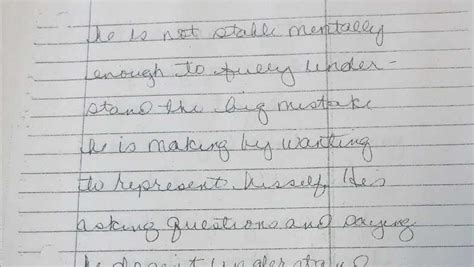 he is not stable mentally
enough to fully under-
stand the big mistake
he is making by wanting
to represent hisself, Hes
asking questions and saying
he doesnt understand